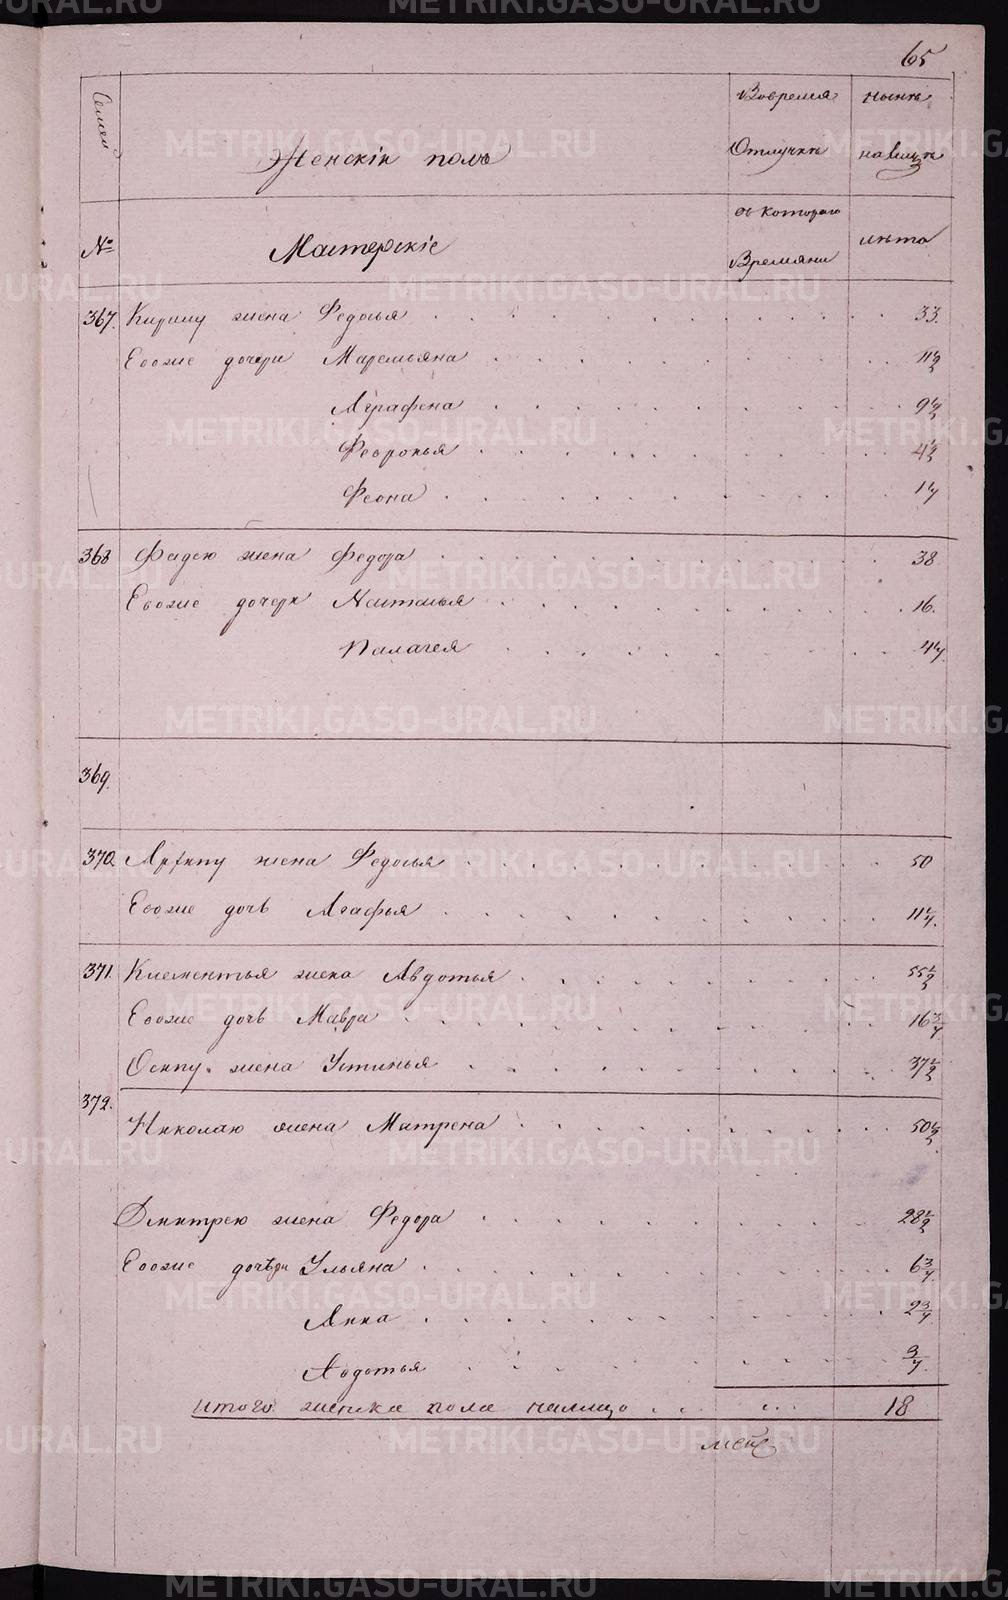 65
Семей
Женскій полъ
Вовремя
нынѣ
Отлучкѣ
на лицѣ
№
Мастерскіе
съ котораго
Времяни
лѣта
367. Кирилу жена Федосья 33.
Евоже дочери Маремьяна 11½
Аграфена 9½
Февронья 4½
Феона 1¼
368 Фадею жена Федора 38
Евоже дочери Настасья 16.
Палагея 4¼.
369.
370. Архипу жена Федосья 50
Евоже дочь Агафья 11¼.
371. Клементья жена Авдотья 55½
Евоже дочь Мавра 16¾
Осипу жена Устинья 37½
372.
Николаю жена Матрена 50½
Дмитрею жена Федора 28½
Евоже дочери Ульяна 6¾
Анна 2¾
Авдотья ¾
итого женска пола налицо 18
METRIKI.GASO-URAL.RU